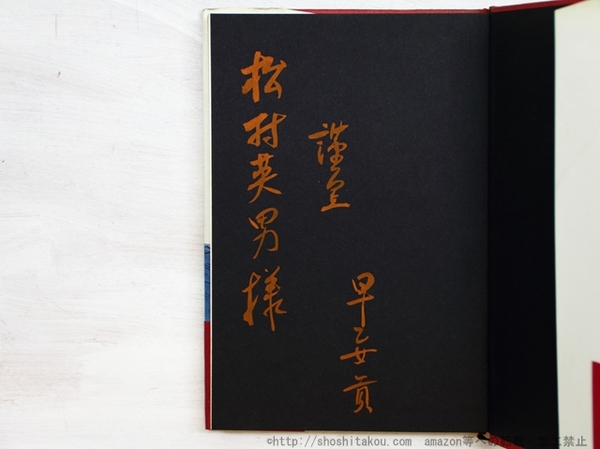 謹呈
早乙女貢
松村英男様
©http://shoshitakou.com amazon等への 禁止